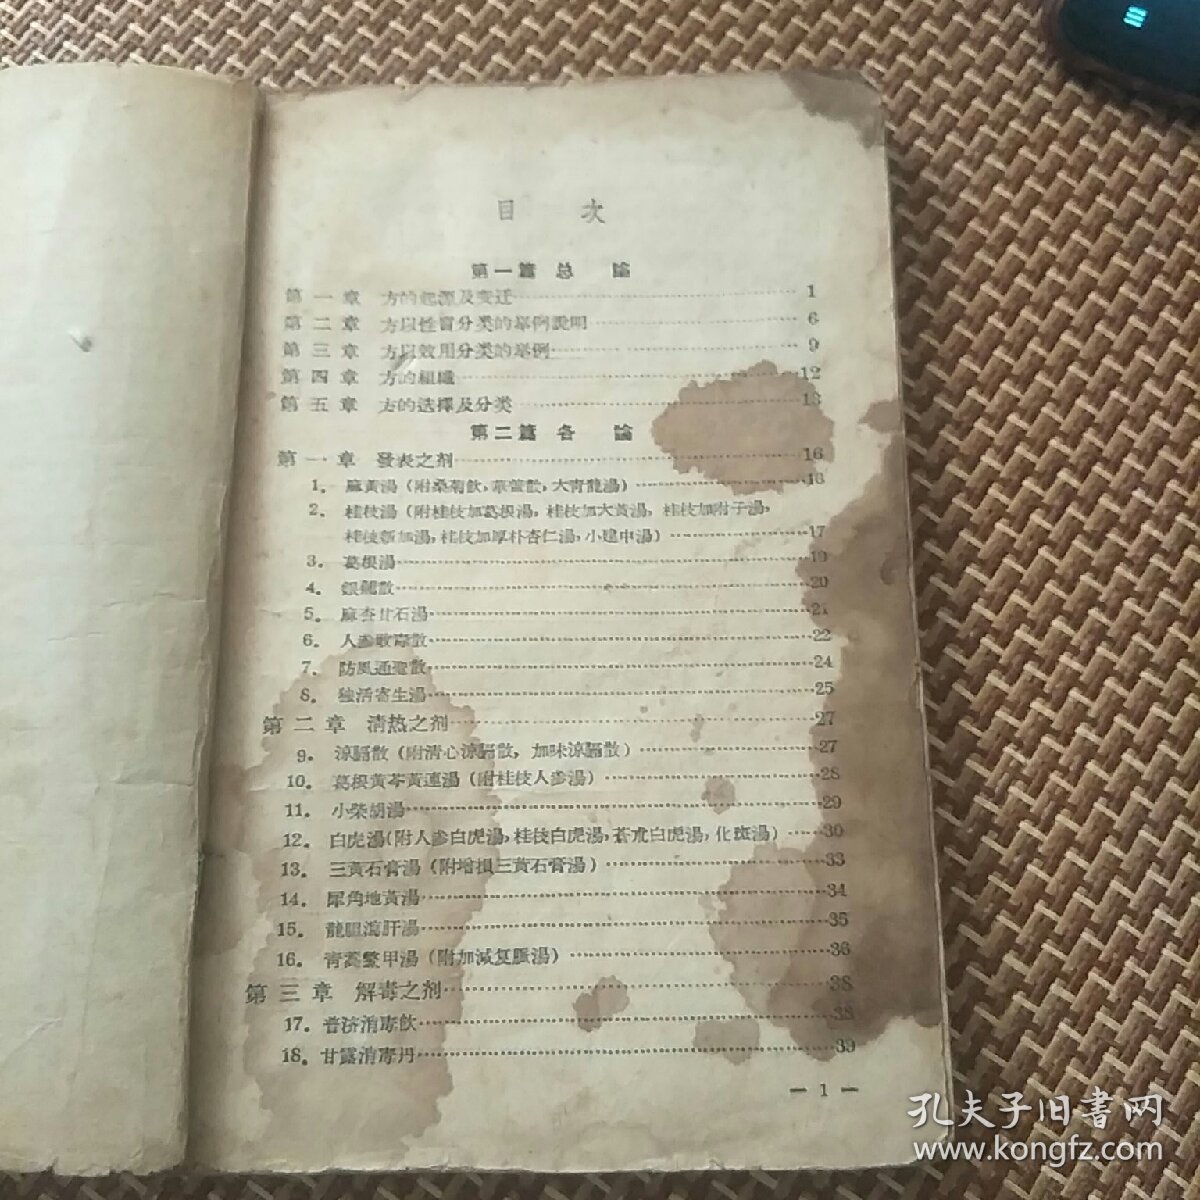 目 次
第一篇 总 論
第一章 方的起源及变迁 1
第二章 方以性質分类的举例說明 6
第三章 方以效用分类的举例 9
第四章 方的組織 12
第五章 方的选擇及分类 13
第二篇 各 論
第一章 發表之剂 16
1. 麻黄湯（附桑菊飲，華蓋散，大青龍湯） 16
2. 桂枝湯（附桂枝加葛根湯，桂枝加大黃湯，桂枝加附子湯，
桂枝新加湯，桂枝加厚朴杏仁湯，小建中湯） 17
3. 葛根湯 19
4. 銀翹散 20
5. 麻杏甘石湯 21
6. 人参敗毒散 22
7. 防風通聖散 24
8. 独活寄生湯 25
第二章 清热之剂 27
9. 涼膈散（附清心涼膈散，加味涼膈散） 27
10. 葛根黃芩黃連湯（附桂枝人参湯） 28
11. 小柴胡湯 29
12. 白虎湯（附人参白虎湯，桂枝白虎湯，蒼朮白虎湯，化斑湯） 30
13. 三黃石膏湯（附增損三黃石膏湯） 33
14. 犀角地黃湯 34
15. 龍胆瀉肝湯 35
16. 青蒿鱉甲湯（附加减复脈湯） 36
第三章 解毒之剂 38
17. 普济消毒飲 38
18. 甘露消毒丹 39
— 1 —
孔夫子旧書网
www.kongfz.com